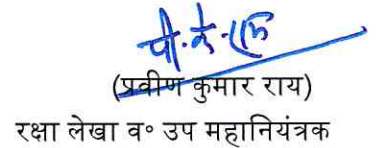 (प्रवीण कुमार राय)
रक्षा लेखा व॰ उप महानियंत्रक